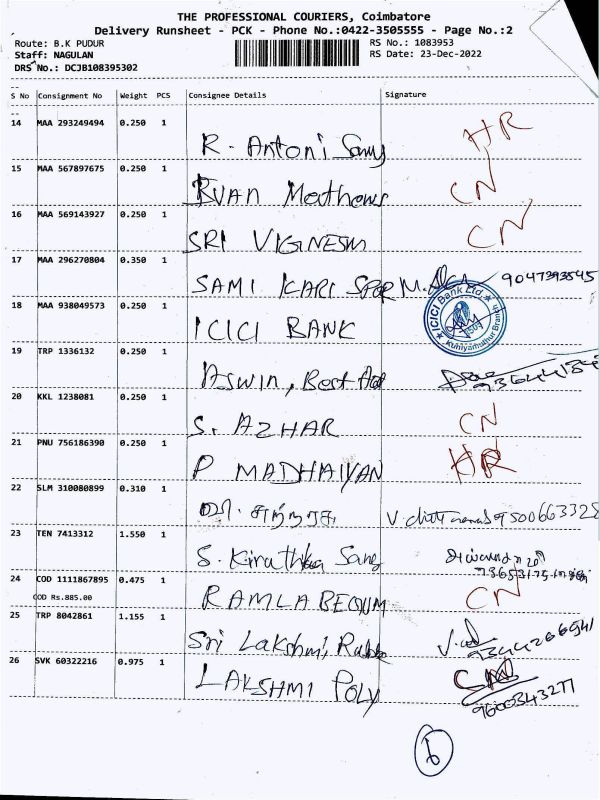 THE PROFESSIONAL COURIERS, Coimbatore
Delivery Runsheet - PCK - Phone No.:0422-3505555 - Page No.:2
Route: B.K PUDUR RS No.: 1083953
Staff: NAGULAN RS Date: 23-Dec-2022
DRS No.: DCJB108395302
S No Consignment No Weight PCS Consignee Details Signature
14 MAA 293249494 0.250 1 R. Antoni Samy HR
15 MAA 567897675 0.250 1 RYAN Mathews CN
16 MAA 569143927 0.250 1 SRI VIGINESH CN
17 MAA 296270804 0.350 1 SAMI KARI SPOR 9047393545
18 MAA 938049573 0.250 1 ICICI BANK ICICI Bank Ltd Kuniyamuthur Branch
19 TRP 1336132 0.250 1 Aswin, Best
20 KKL 1238081 0.250 1 S. AZHAR CN
21 PNU 756186390 0.250 1 P MADHAIYAN HR
22 SLM 310080899 0.310 1 9500663325
23 TEN 7413312 1.550 1 S. Kiruthika
24 COD 1111867895 0.475 1 RAMLA BEGUM CN
COD Rs.885.00
25 TRP 8042861 1.155 1 Sri Lakshmi, 9344266941
26 SVK 60322216 0.975 1 LAKSHMI POLY
9600343277
6